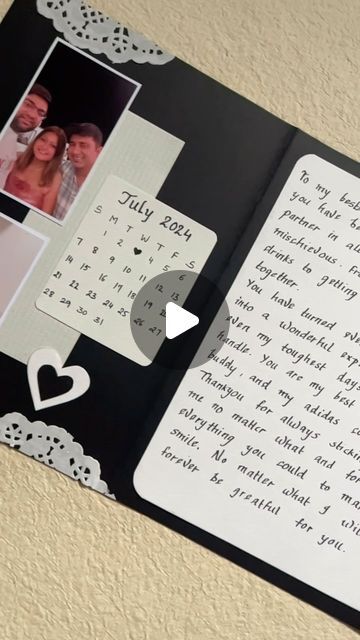 July 2024
S M T W T F S
1 2 ♥ 4 5 6
7 8 9 10 11 12 13
14 15 16 17 18
21 22 23 24 25 26 27
28 29 30 31
To my best
you have be
partner in all
mischievous. Fr
drinks to getting
together.
You have turned eve
into a wonderful exp
even my toughest days
handle. You are my best
buddy, and my adidas co
Thankyou for always stickin
me no matter what and for
everything you could to ma
smile. No matter what I wil
forever be greatful for you.